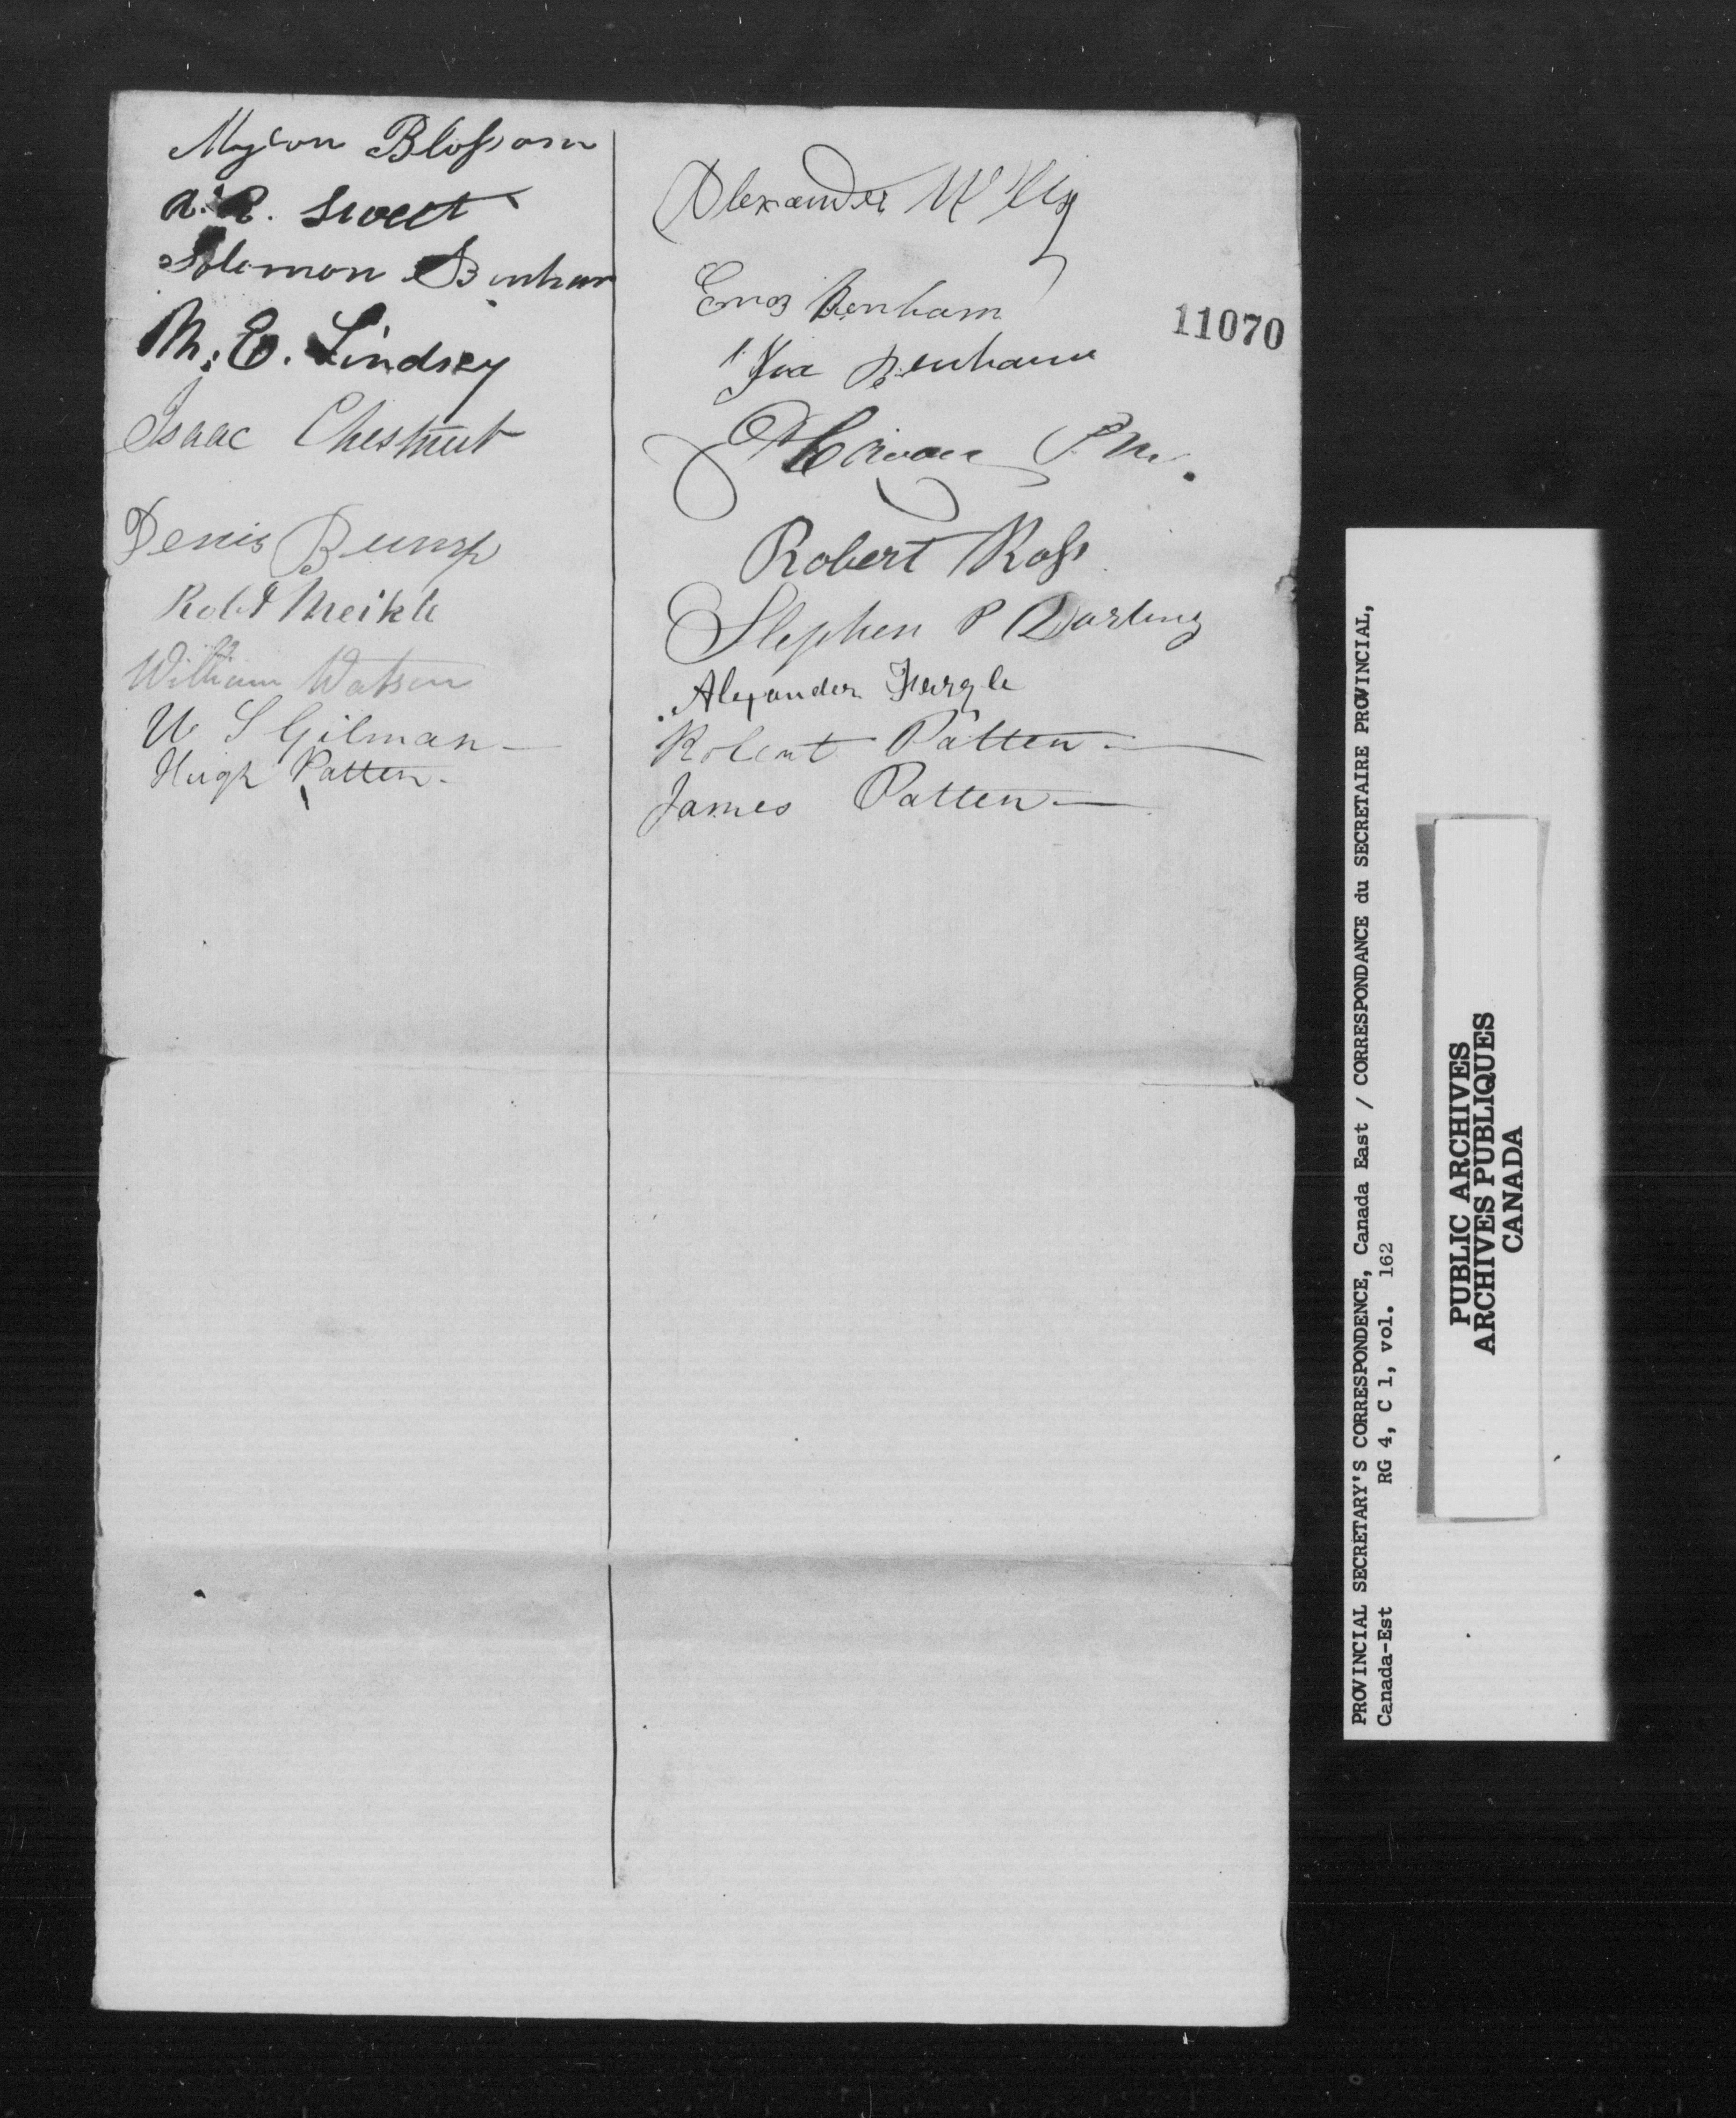 Myron Blossom
A. R. Sweet
Solomon Benham
M. E. Lindsey
Isaac Chestnut
Denis Bump
Robt Meikle
William Watson
W S Gilman
Hugh Patten
Alexander
Enos Benham
11070
Ira Benham
P M.
Robert Ross
Stephen P Darling
Alexander
Robert Patten
James Patten
PROVINCIAL SECRETARY'S CORRESPONDENCE, Canada East / CORRESPONDANCE du SECRETAIRE PROVINCIAL,
Canada-Est RG 4, C 1, vol. 162
PUBLIC ARCHIVES
ARCHIVES PUBLIQUES
CANADA